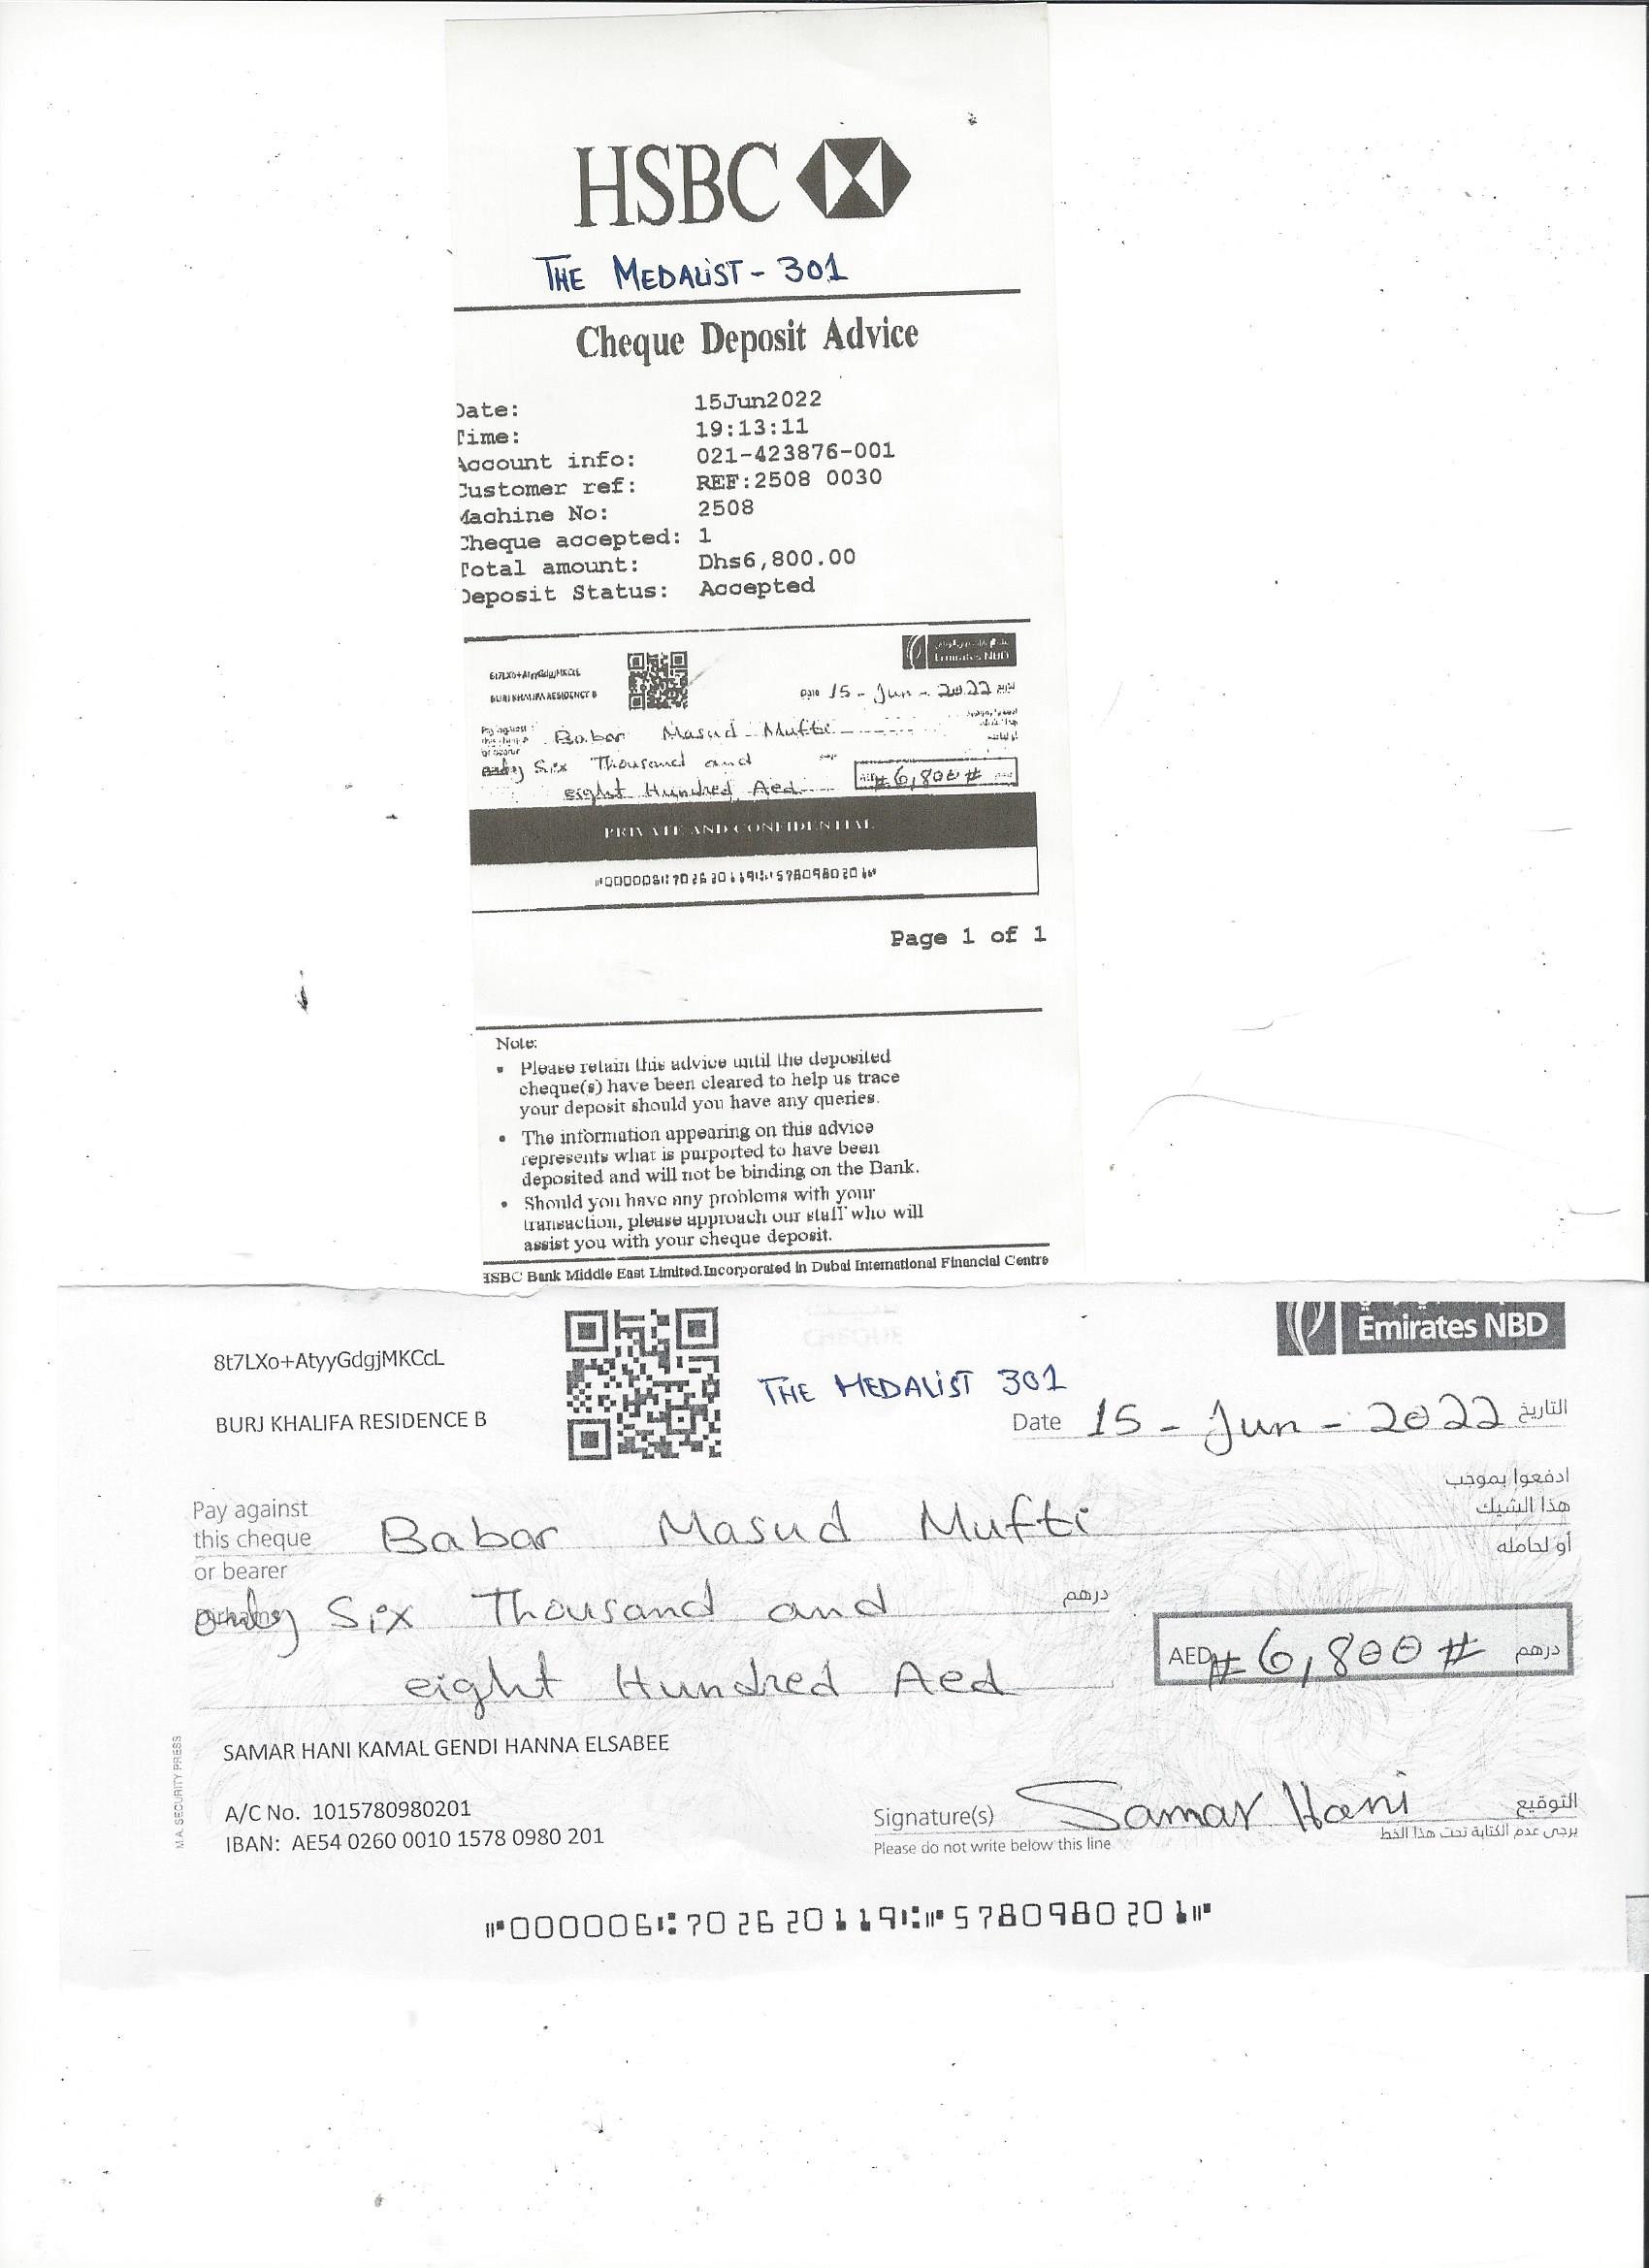 HSBC
THE MEDALIST - 301
Cheque Deposit Advice
Date: 15Jun2022
Time: 19:13:11
Account info: 021-423876-001
Customer ref: REF:2508 0030
Machine No: 2508
Cheque accepted: 1
Total amount: Dhs6,800.00
Deposit Status: Accepted
Emirates NBD
BURJ KHALIFA RESIDENCE B
Date 15 - Jun - 2022
Pay against
this cheque
or bearer
Babar Masud Mufti
only Six Thousand and
eight Hundred Aed
# 6,800 #
PRIVATE AND CONFIDENTIAL
⑈000006⑆702620119⑆⑈5780980201⑈
Page 1 of 1
Note:
• Please retain this advice until the deposited
cheque(s) have been cleared to help us trace
your deposit should you have any queries.
• The information appearing on this advice
represents what is purported to have been
deposited and will not be binding on the Bank.
• Should you have any problems with your
transaction, please approach our staff who will
assist you with your cheque deposit.
HSBC Bank Middle East Limited.Incorporated in Dubai International Financial Centre
CHEQUE
Emirates NBD
8t7LXo+AtyyGdgjMKCcL
THE MEDALIST 301
BURJ KHALIFA RESIDENCE B
Date 15 - Jun - 2022 التاريخ
Pay against
this cheque
or bearer
Babar Masud Mufti
ادفعوا بموجب
هذا الشيك
أو لحامله
only Six Thousand and درهم
eight Hundred Aed
AED # 6,800 # درهم
M.A. SECURITY PRESS
SAMAR HANI KAMAL GENDI HANNA ELSABEE
A/C No. 1015780980201
IBAN: AE54 0260 0010 1578 0980 201
Signature(s) Samar Hani التوقيع
Please do not write below this line يرجى عدم الكتابة تحت هذا الخط
⑈000006⑆702620119⑆⑈5780980201⑈